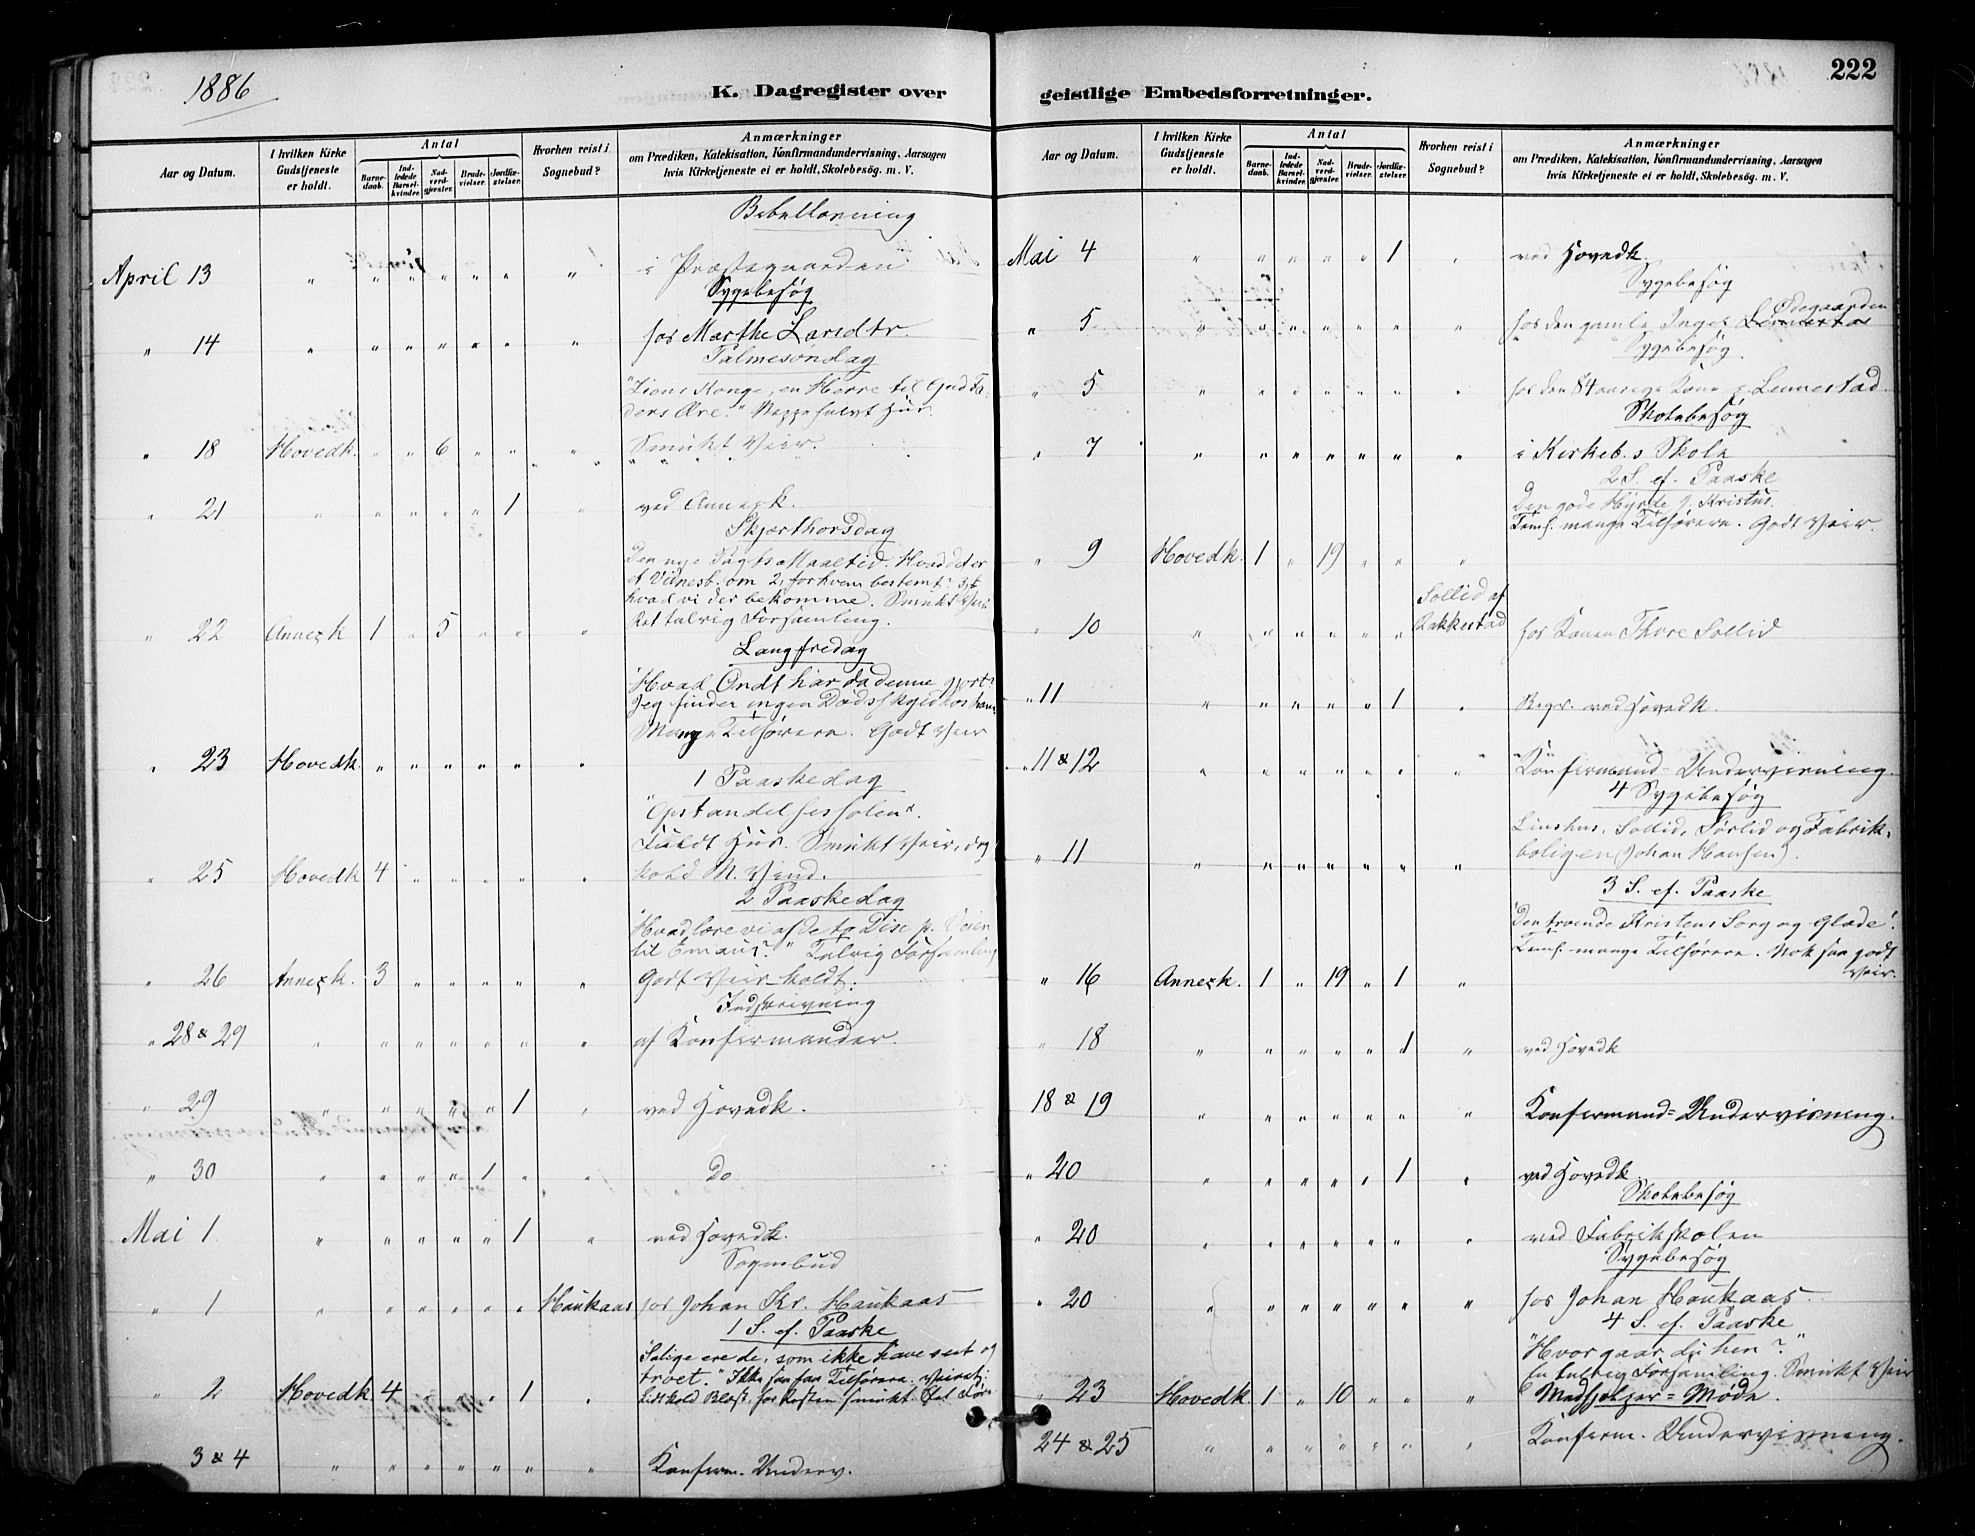 1886
K. Dagregister over
Aar og Datum.
I hvilken Kirke Gudstjeneste er holdt.
Antal
Barnedaab.
Indledede Barselkvinder.
Nadverdgjester.
Brudevielser.
Jordfæstelser.
Hvorhen reist i Sognebud?
Anmærkninger
om Prædiken, Katekisation, Konfirmandundervisning, Aarsagen
hvis Kirketjeneste ei er holdt, Skolebesøg. m. V.
Bibellæsning
April 13 " " " " " " " i Præstegaarden
Sygebesøg
" 14 " " " " " " " hos Marthe
Palmesøndag
"Zions Konge, en Herre til Gud Fa-
ders Ære."
" 18 Hovedk. " " 6 " " " Smukt Veir.
" 21 " " " " " 1 " ved Annexk.
Skjærthorsdag
Den nye Pagts Maaltid. Hvad det er
et Vidnesb. om 2, for hvem bestemt? 3,
hvad vi der bekomme. Smukt Veir
" 22 Annexk 1 " 5 " " " Ret talrig Forsamling.
Langfredag
"Hvad Ondt har da denne gjort?
Jeg finder ingen Dødsskyld hos ham"
Mange Tilhørere. Godt Veir
" 23 Hovedk. " " " " " "
1 Paaskedag
"Opstandelsessolen".
Fuldt Hus. Smukt Veir, dog
" 25 Hovedk 4 " " " " " kold N. Vind.
2 Paaskedag
"Hvad lære vi af de to Disc. p. Veien
til Emaus?" Talrig Forsamling
" 26 Annexk. 3 " " " " " Godt Veir koldt.
Indskrivning
" 28 & 29 " " " " " " " af Konfirmander.
" 29 " " " " " 1 " ved Hovedk.
" 30 " " " " 1 " " Do
Mai 1 " " " " " 1 " ved Hovedk.
Sognebud
" 1 " " " " " " Haukaas hos Johan Kr. Haukaas
1 S. ef. Paaske
"Salige ere de, som ikke have seet og
troet." Ikke saa faa Tilhørere. Veiret:
" 2 Hovedk 4 " " " 1 " Lidt kold Blæst, for Resten smukt.
" 3 & 4 " " " " " " " Konfirm. Underv.
geistlige Embedsforretninger.
222
Aar og Datum.
I hvilken Kirke Gudstjeneste er holdt.
Antal
Barnedaab.
Indledede Barselkvinder.
Nadverdgjester.
Brudevielser.
Jordfæstelser.
Hvorhen reist i Sognebud?
Anmærkninger
om Prædiken, Katekisation, Konfirmandundervisning, Aarsagen
hvis Kirketjeneste ei er holdt, Skolebesøg. m. V.
Mai 4 " " " " " 1 " ved Hovedk.
Sygebesøg
Ødegaarden
" 5 " " " " " " " hos den gamle Inger
Sygebesøg.
" 5 " " " " " " " hos den 84 aarige Kone p. Lennestad.
Skolebesøg
" 7 " " " " " " " i Kirkeb.s Skole
2 S. ef. Paaske
Den gode Hyrde J. Kristus.
Temf. mange Tilhørere. Godt Veir.
" 9 Hovedk. 1 " 19 " " "
Sollid af
" 10 " " " " " " Rakkestad hos Konen Thore Sollid
" 11 " " " " " 1 " Begr. ved Hovedk.
" 11 & 12 " " " " " " " Konfirmand-Undervisning.
4 Sygebesøg
Linshus, Sollid, Sørlid og Fabrik-
" 11 " " " " " " " boligen (Johan Hansen).
3 S. ef. Paaske
"Den troende Kristens Sorg og Glæde".
Temf. mange Tilhørere. Nok saa godt
" 16 Annexk. 1 " 19 " 1 " Veir.
" 18 " " " " " 1 " ved Hovedk
18 & 19 " " " " " " " Konfirmand-Undervisning.
" 20 " " " " " 1 " ved Hovedk
Skolebesøg
" 20 " " " " " " " ved Fabrikskolen
Sygebesøg
" 20 " " " " " " " hos Johan Haukaas
4 S. ef. Paaske
"Hvor gaar du hen?"
En talrig Forsamling. Smukt Veir
" 23 Hovedk. 1 " 10 " " " Medhjælper-Møde.
24 & 25 " " " " " " " Konfirm. Undervisning.